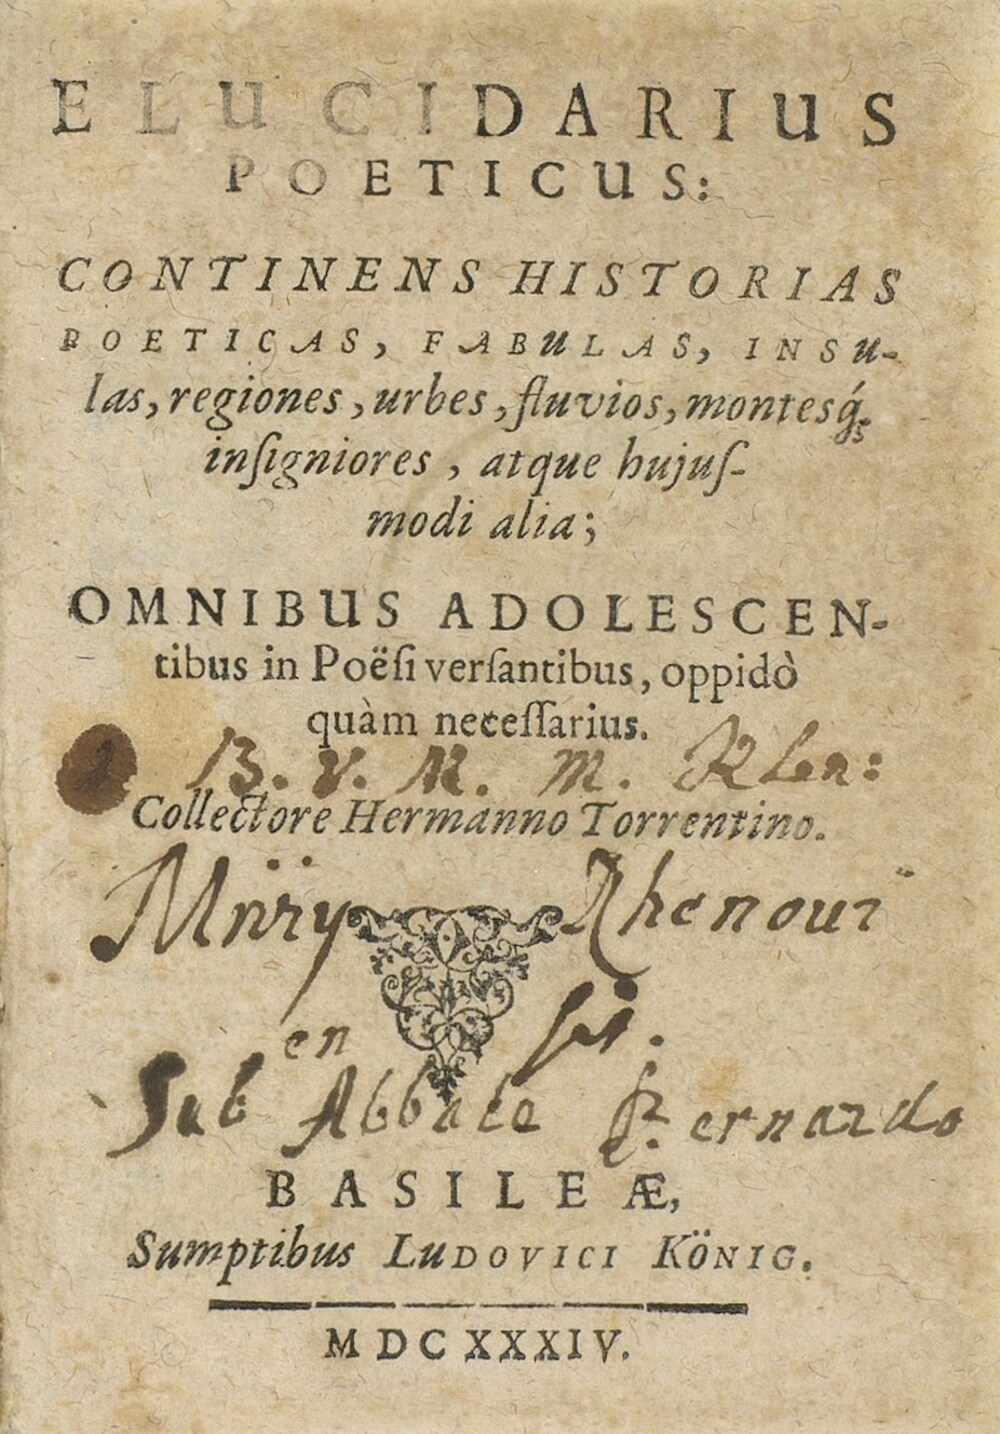 ELUCIDARIUS
POETICUS:
CONTINENS HISTORIAS
POETICAS, FABULAS, INSU-
las, regiones, urbes, fluvios, montesq́;
inſigniores, atque hujuſ-
modi alia;
OMNIBUS ADOLESCEN-
tibus in Poëſi verſantibus, oppidò
quàm neceſſarius.
B. V. M. M. Rhen:
Collectore Hermanno Torrentino.
Rhenovi
en
Sub Abbate Bernardo
BASILEÆ,
Sumptibus LUDOVICI KÖNIG.
MDCXXXIV.